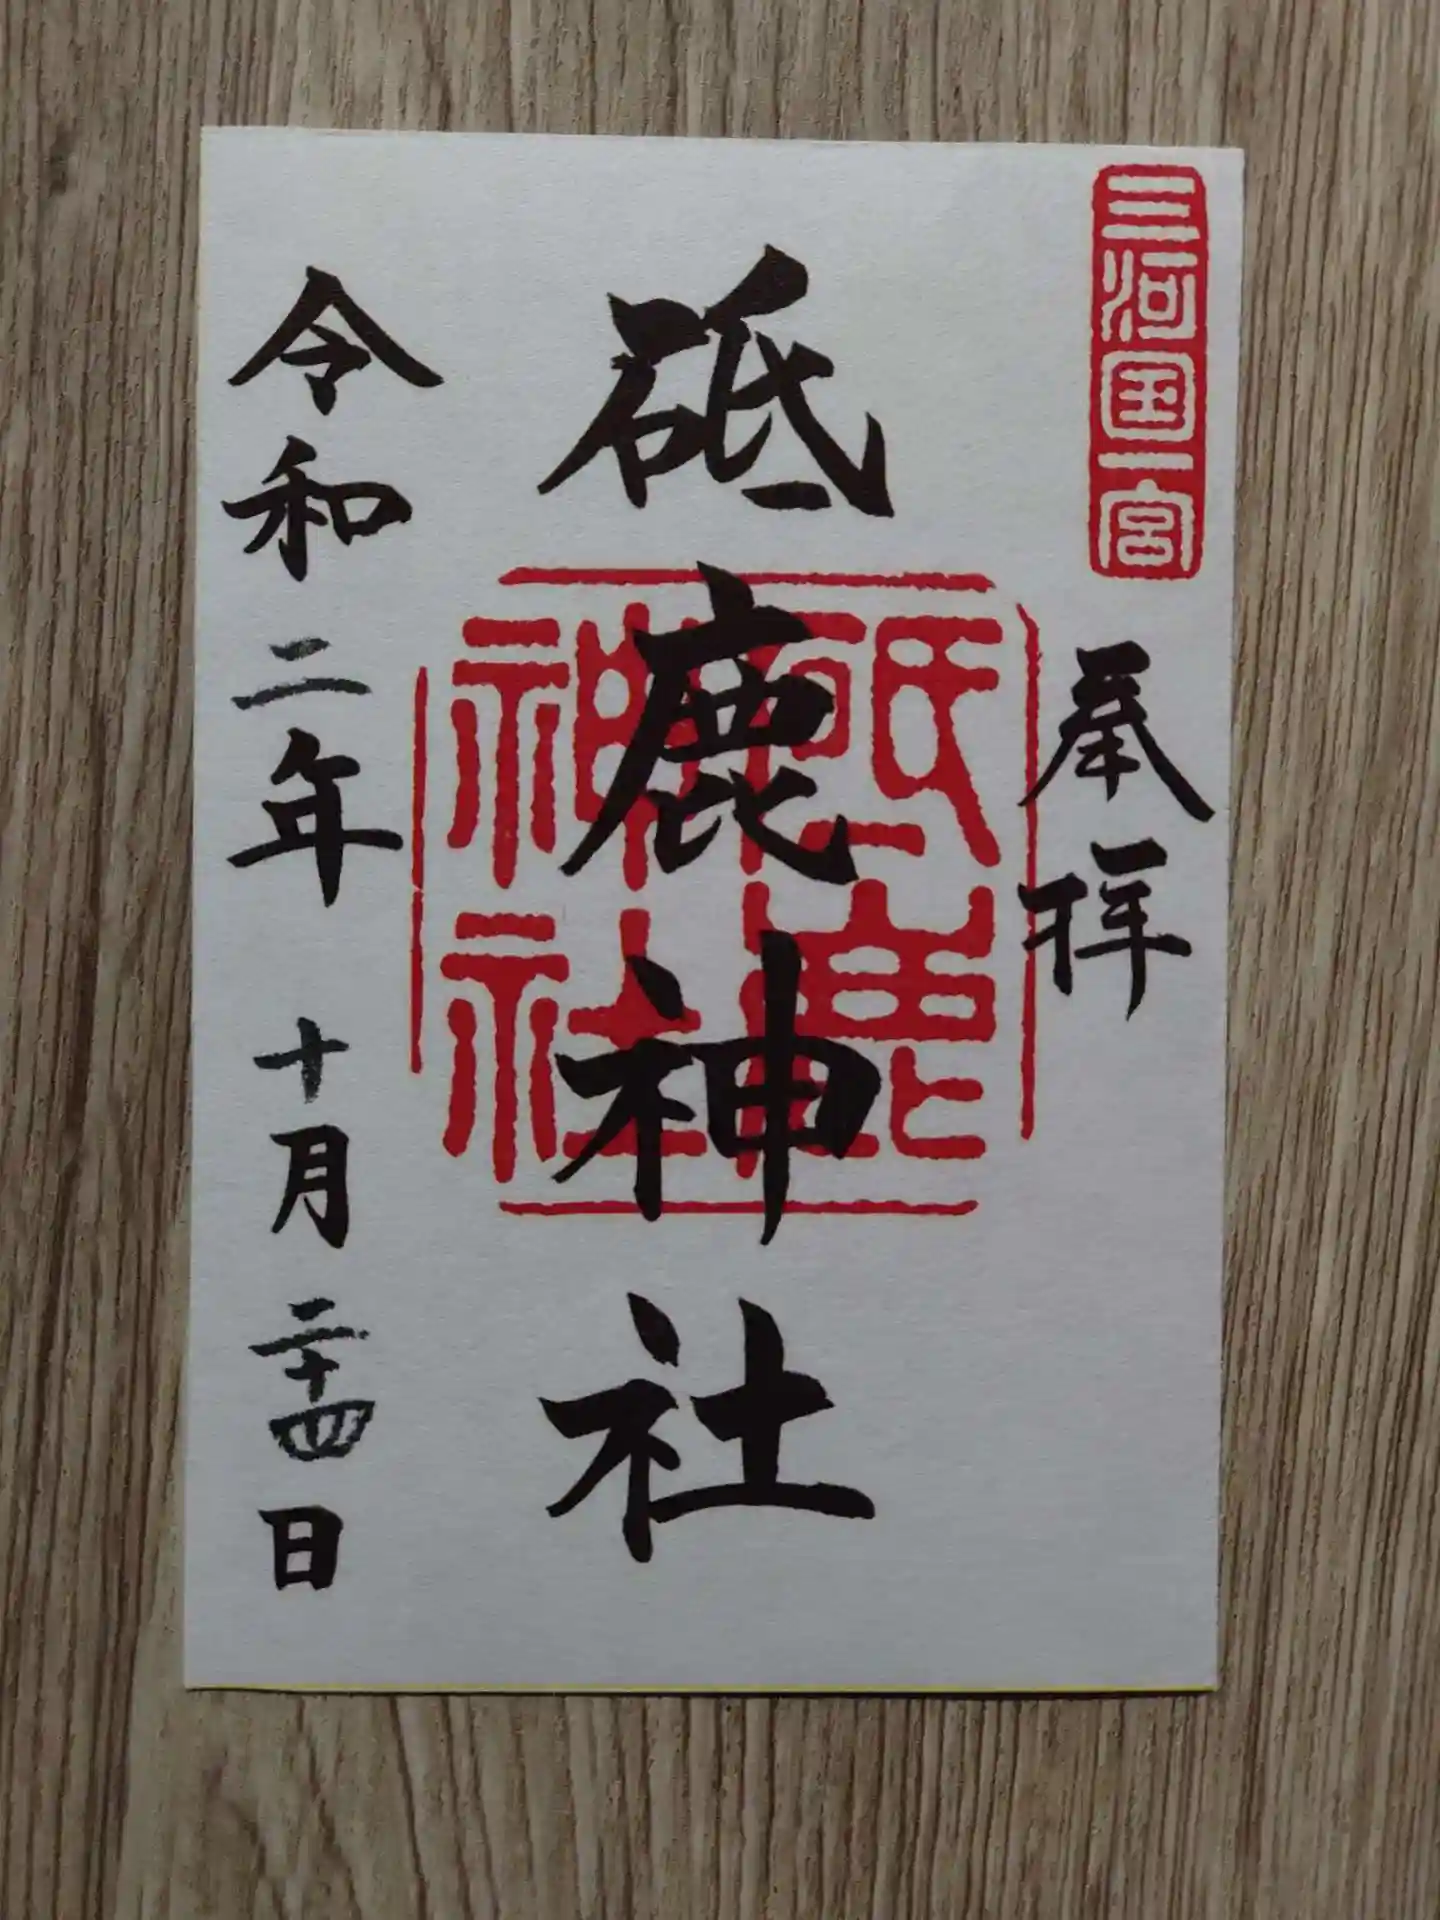 三河国一宮
奉拝
砥鹿神社
砥鹿
神社
令和二年十月二十四日